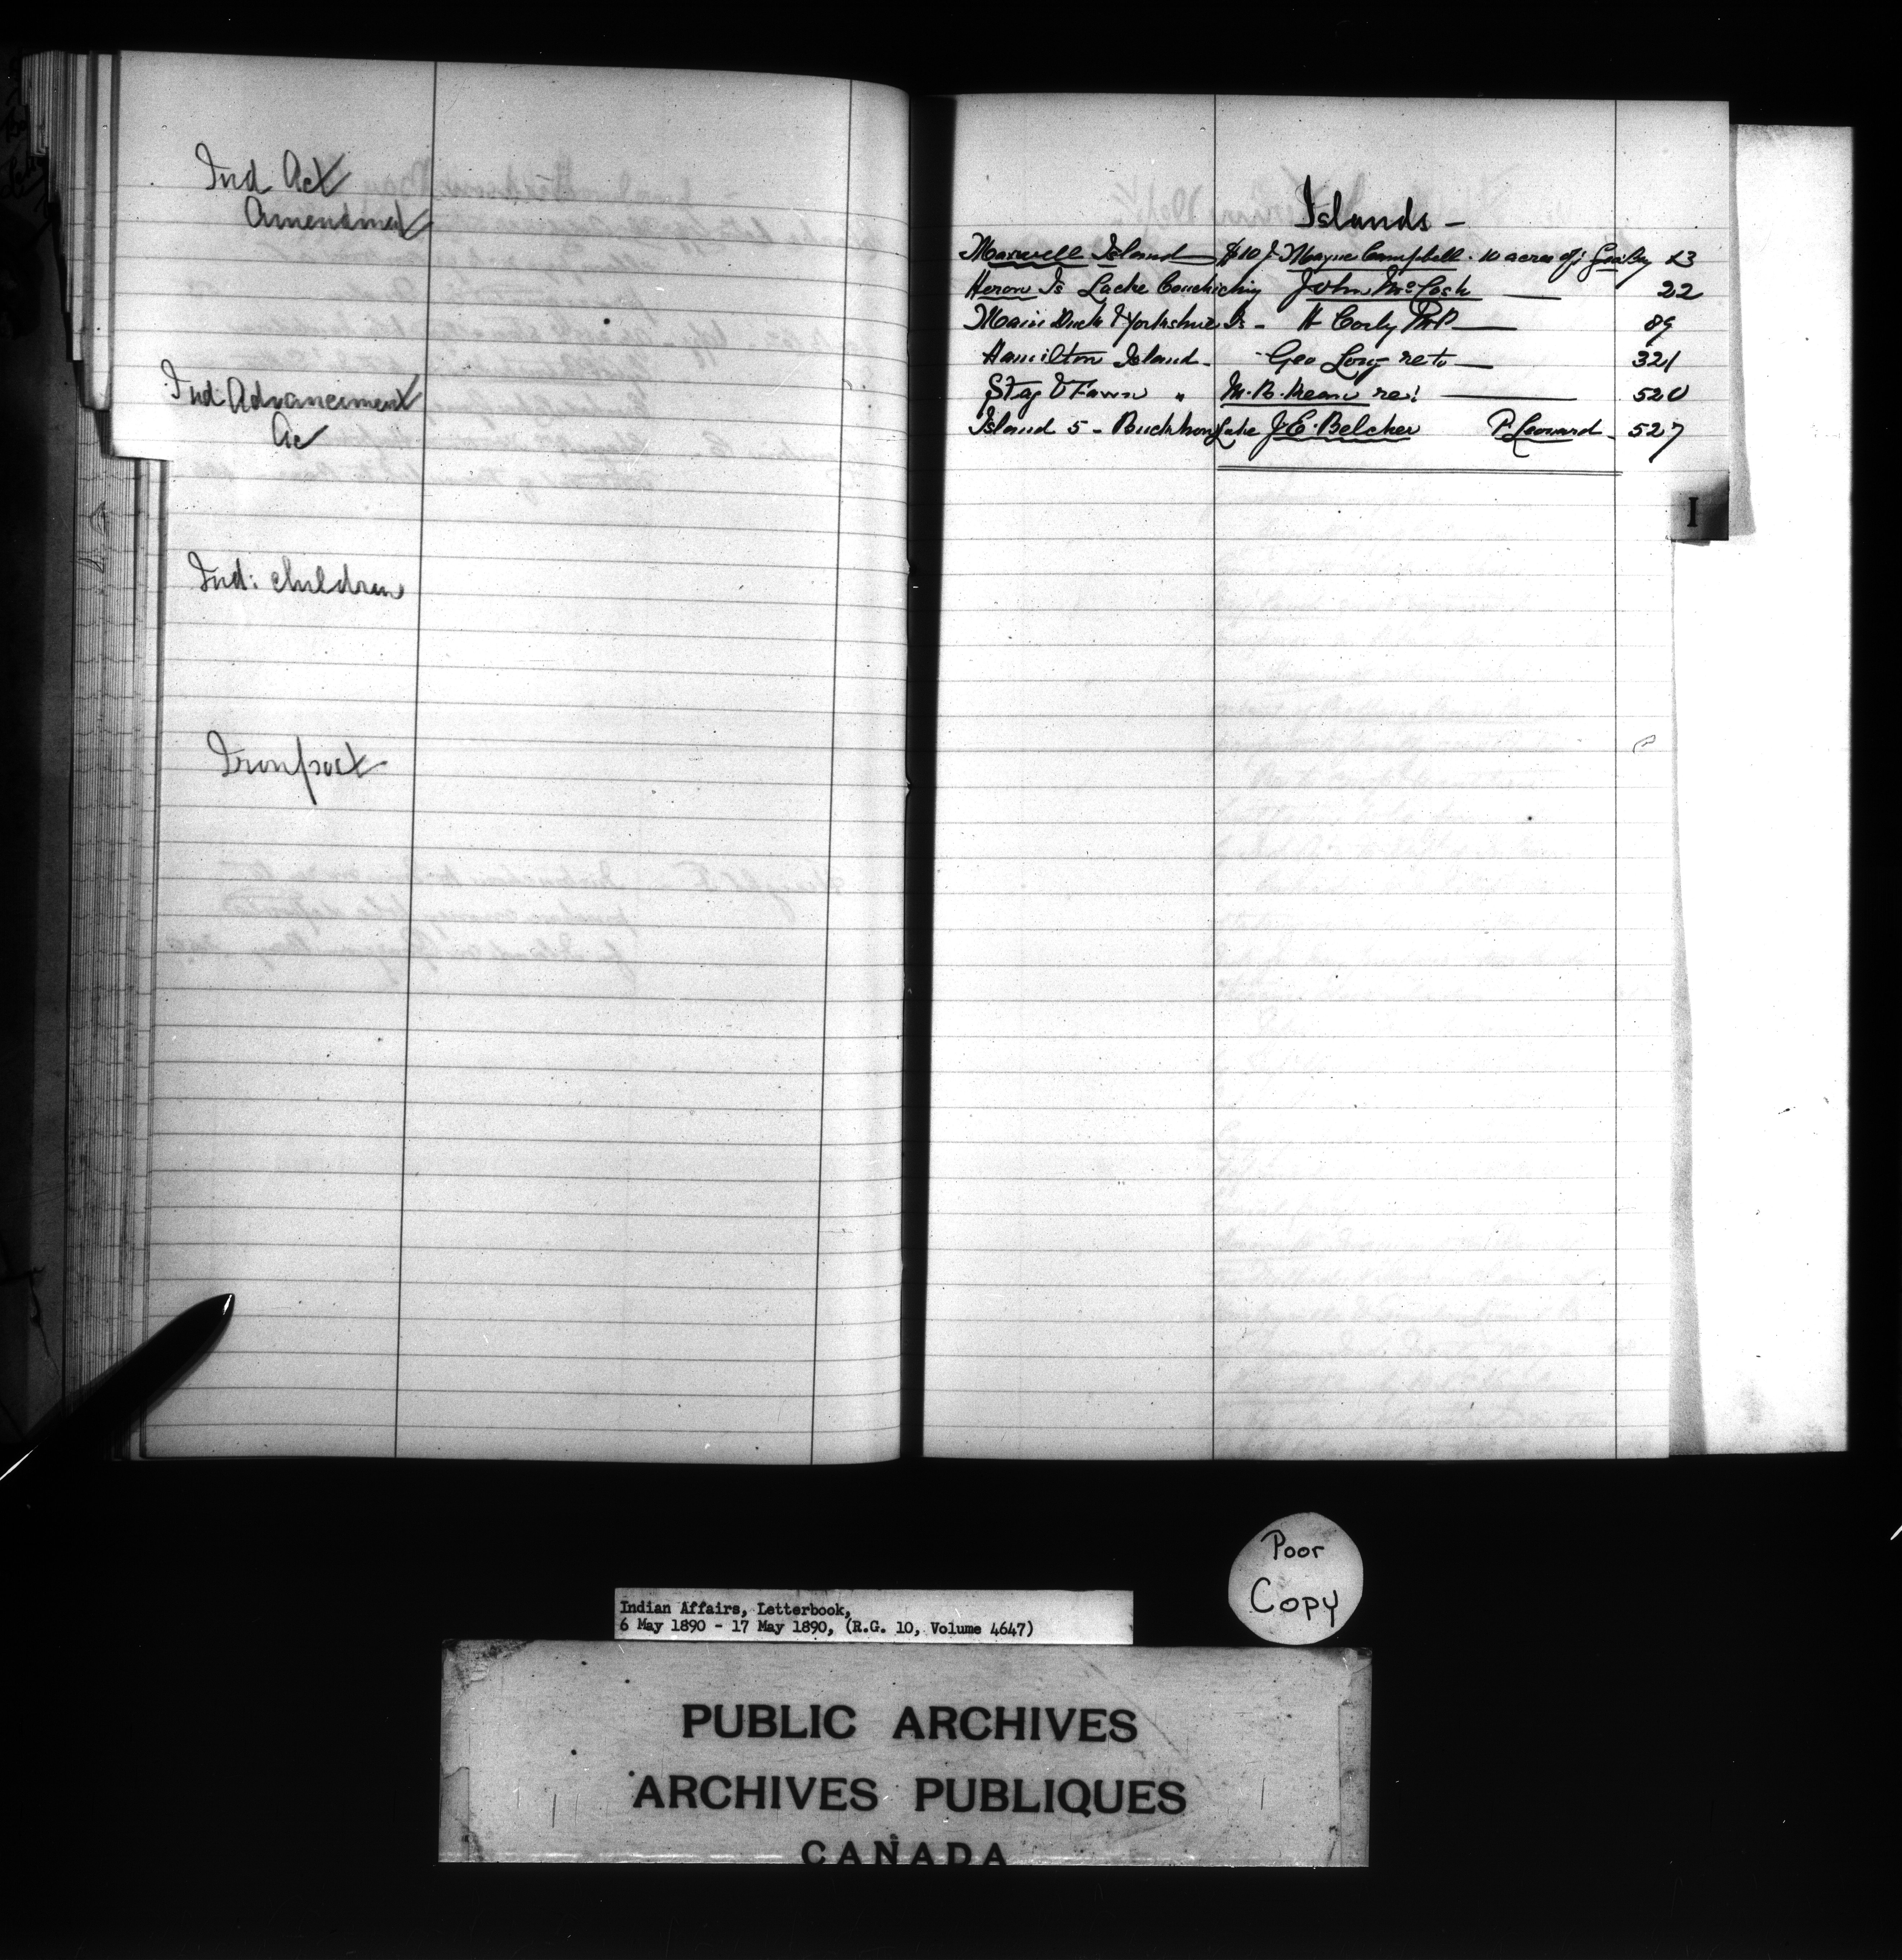 Ind Act
Amendment
Ind Advancement
Ac
Ind: children
Islands -
Maxwell Island $10 J. Mayne Campbell. 10 acres of: Geo: Bay 23
Heron Is Lacke Couchiching John McCosh 22
Main Duck & Yorkshire Is - H Corby M.P. 89
Hamilton Island - Geo Long re to 321
Stag & Fawn " M.B. re: 520
Island 5 - Buckhorn Lake J.E. Belcher P. Leonard - 527
I
Poor
Copy
Indian Affairs, Letterbook,
6 May 1890 - 17 May 1890, (R.G. 10, Volume 4647)
PUBLIC ARCHIVES
ARCHIVES PUBLIQUES
CANADA